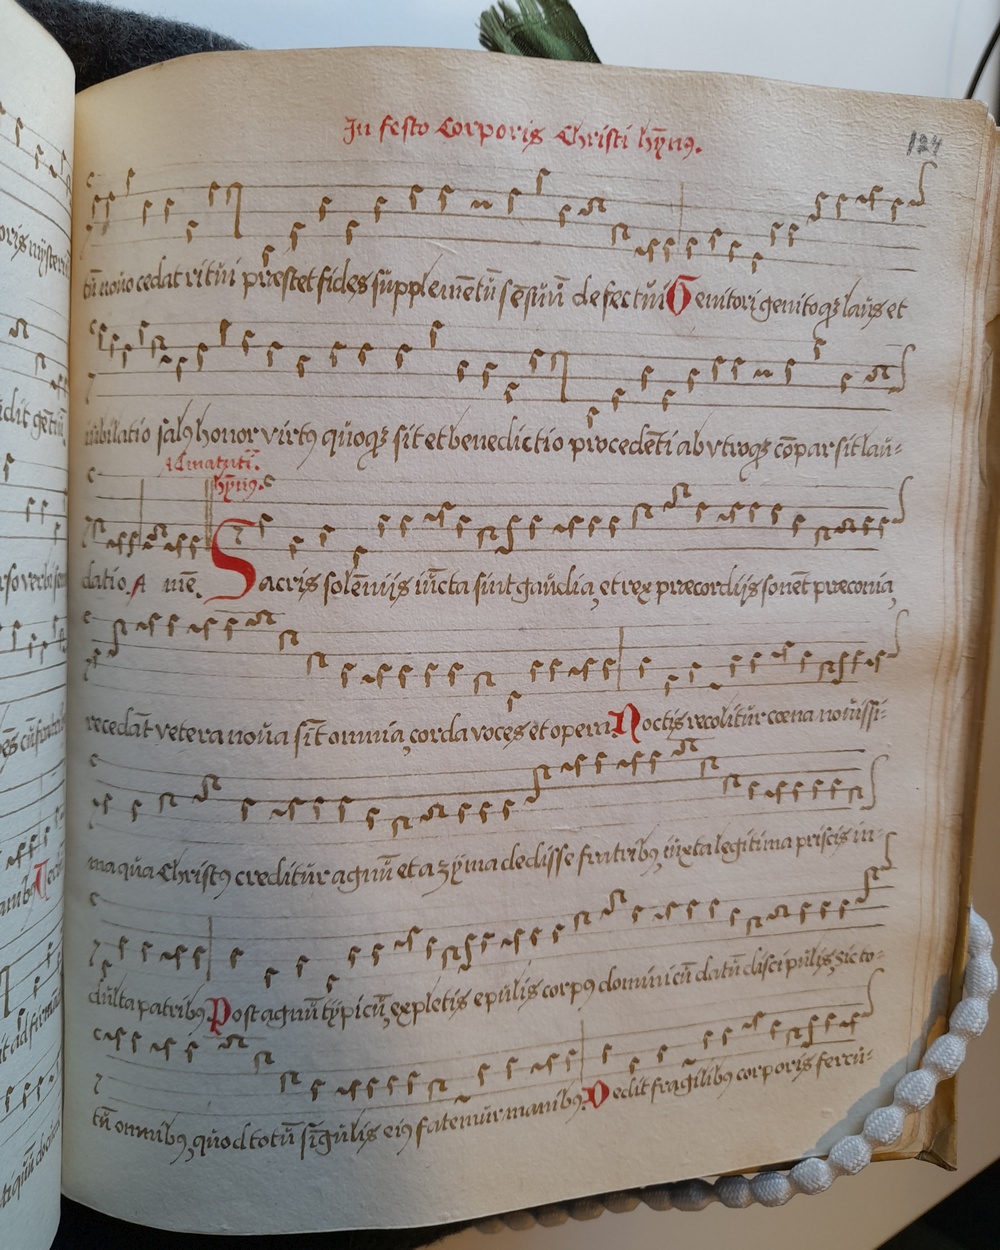 In festo Corporis Christi hỹnꝰ.
124
tũ nouo cedat ritui præstet fides supplemẽtũ sẽsuũ defectui Genitori genitoqꝫ laus et
iubilatio salꝰ honor virtꝰ quoqꝫ sit et benedictio procedẽti ab vtroqꝫ cõpar sit lau-
Ad matuti.
hỹnꝰ.
datio. A mẽ. Sacris solẽnijs iũcta sint gaudia, et rex præcordijs sonẽt præconia,
recedãt vetera noua sĩt omnia, corda voces et opera Noctis recolitur cœna nouissi-
ma qua Christꝰ creditur agnũ et azyma dedisse fratribꝰ, iuxta legitima priscis in-
dulta patribꝰ Post agnũ typicũ, expletis epulis corpꝰ dominicũ datũ discipulis, sic to-
tũ omnibꝰ, quod totũ sĩgulis eiꝰ fatemur manibꝰ. Dedit fragilibꝰ corporis fercu-